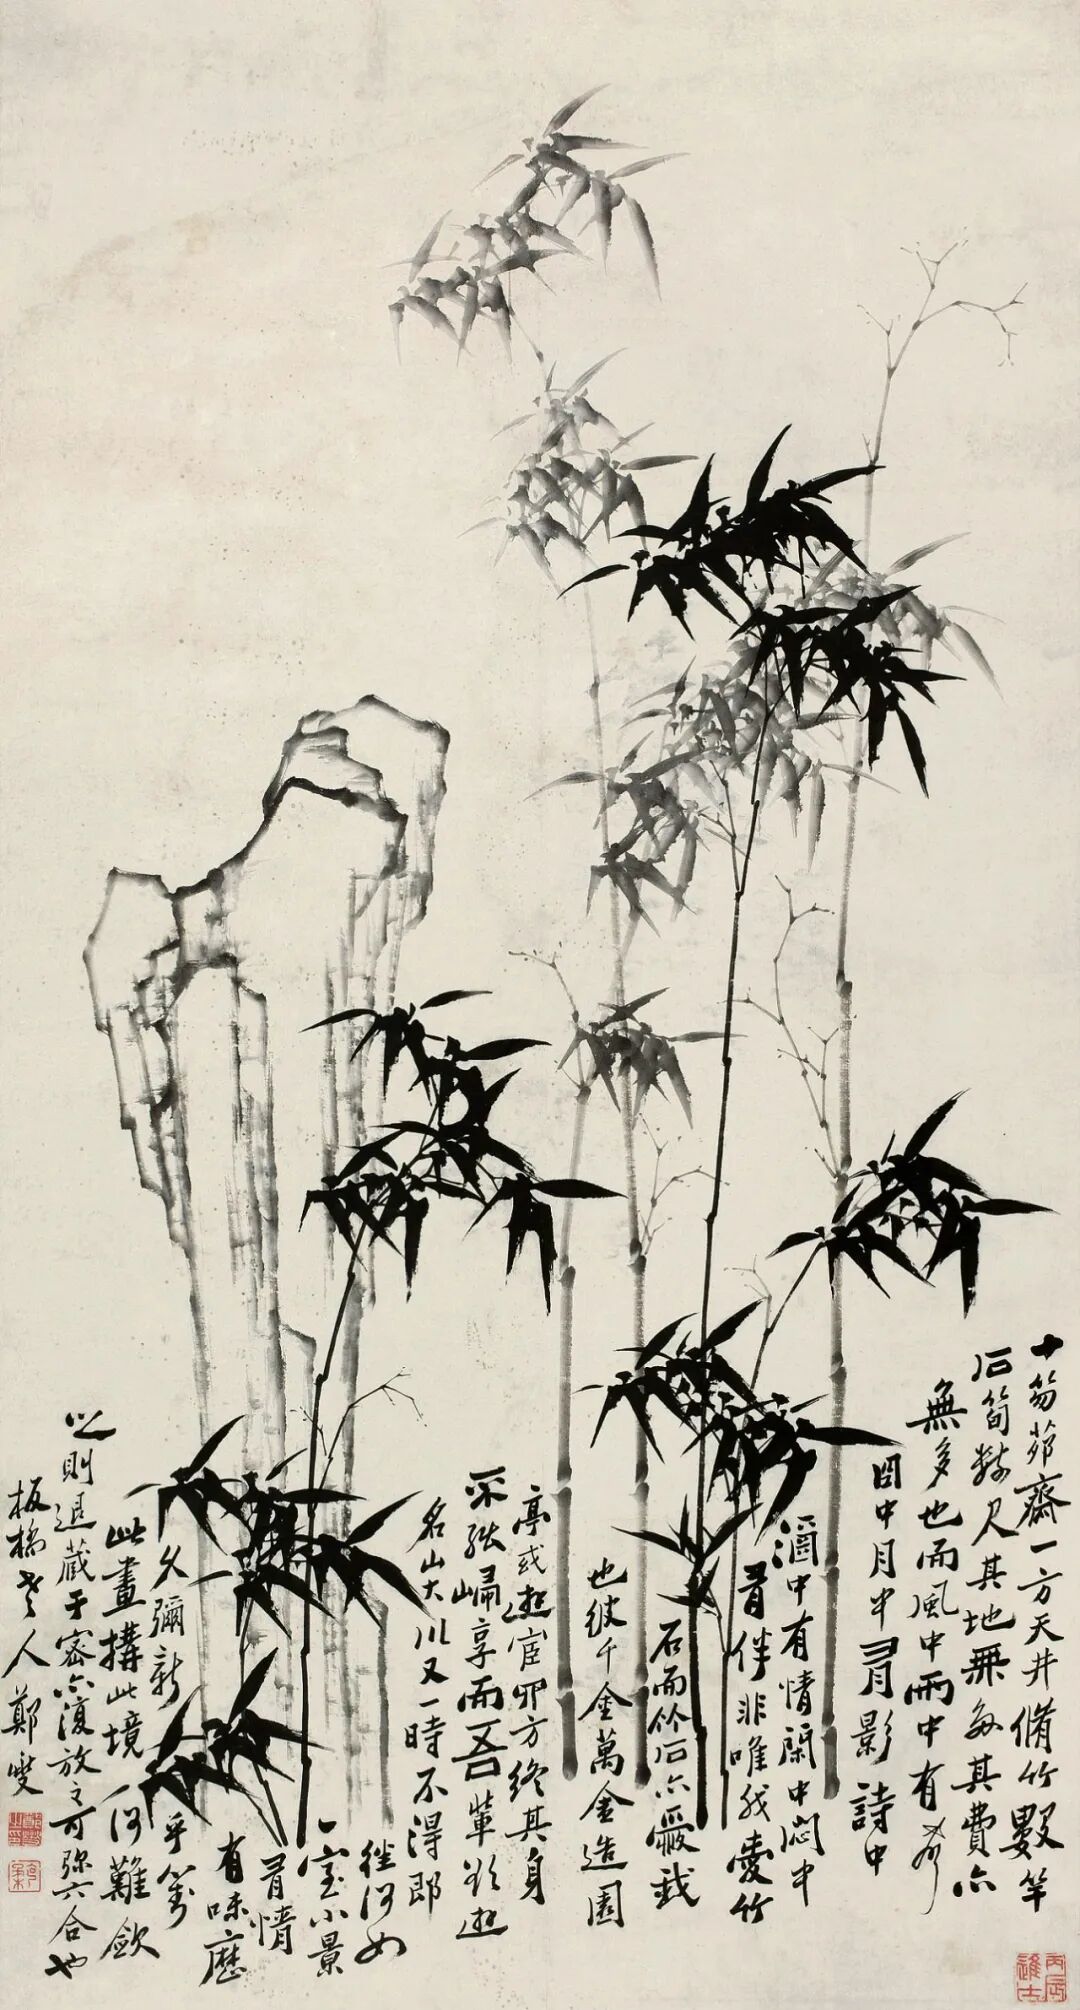 十笏茆齋一方天井脩竹數竿
石筍數尺其地無多其費亦
無多也而風中雨中有聲
日中月中有影詩中
酒中有情閑中悶中
有伴非唯我愛竹
石而竹石亦愛我
也彼千金萬金造園
亭或遊宦四方終其身
不能歸享而吾輩欲遊
名山大川又一時不得即
徃何如
一室小景
有情
有味歷
久彌新乎對
此畫構此境何難歛
之則退藏于密亦復放之可弥六合也
板橋老人鄭燮
鄭燮之印
丙辰進士